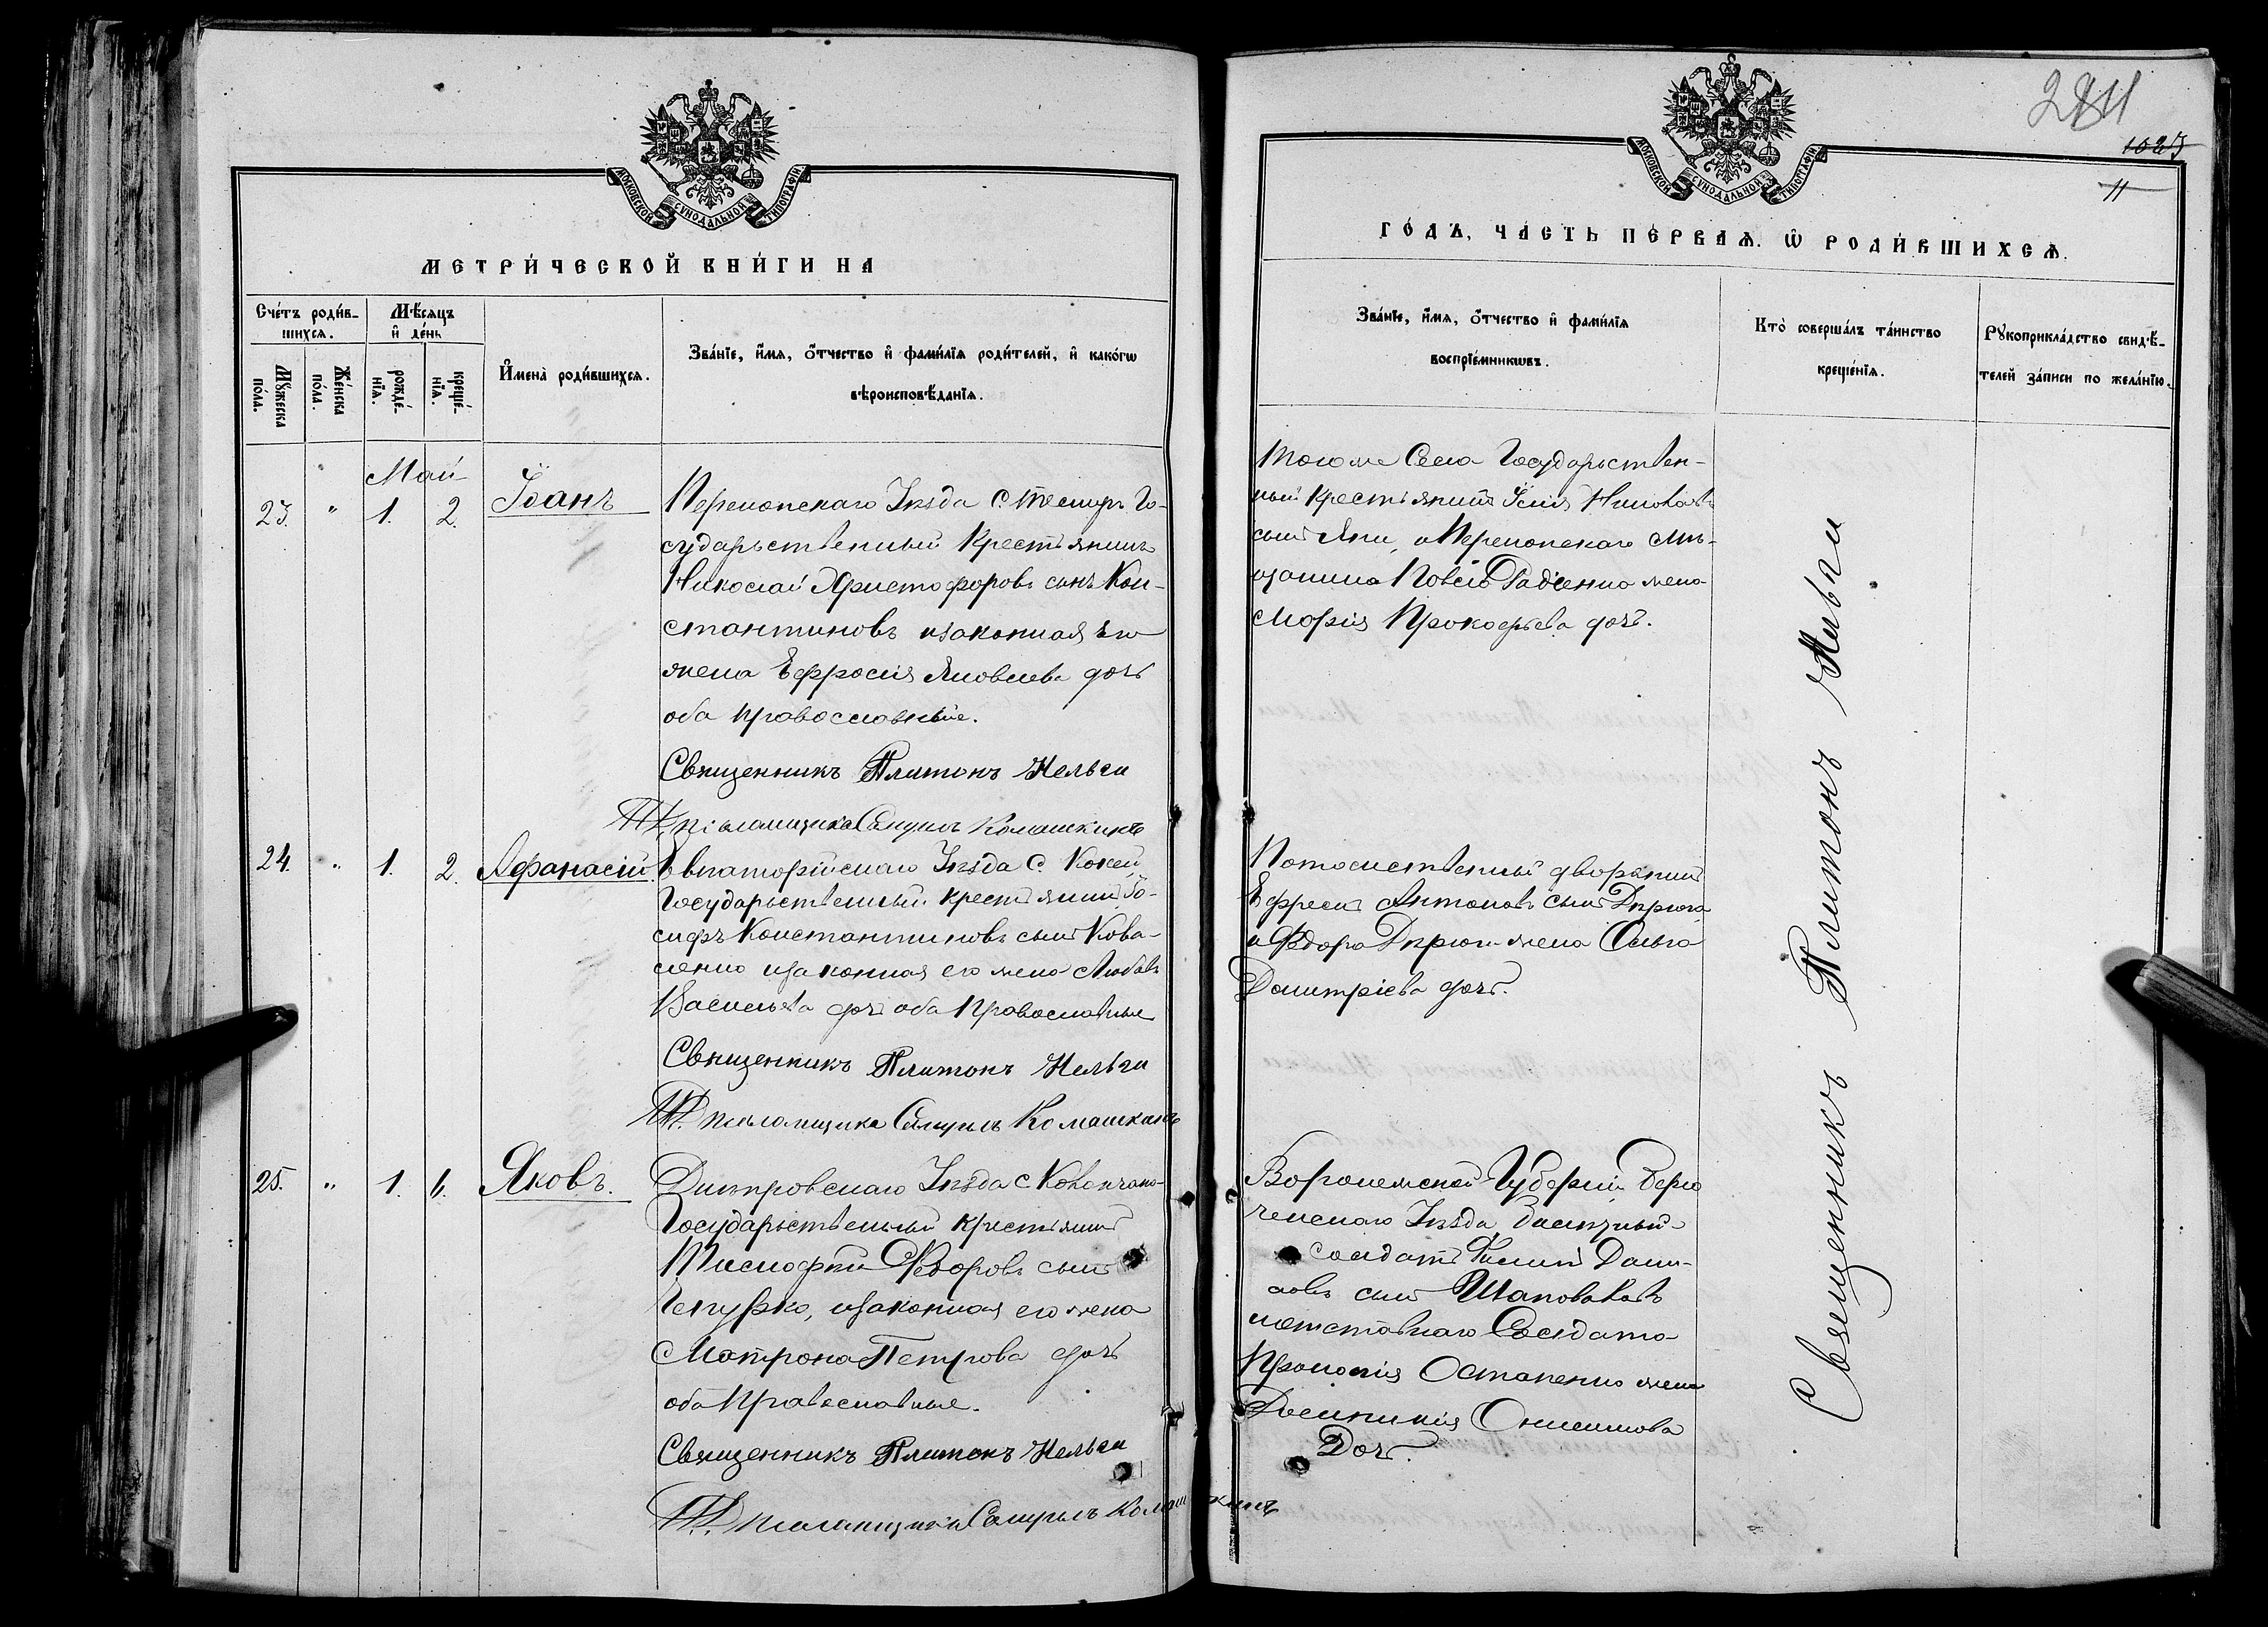 МОСКОВСКОЙ СѴНОДАЛЬНОЙ ТИПОГРАФІИ
МЕТРИ́ЧЕСКОЙ КНИ́ГИ НА
Сче́тъ роди́в-
шихся.
Мѣ́сяцъ
и҆ де́нь
Мꙋ́жеска
по́ла.
Же́нска
по́ла.
рожде́-
нїя.
креще́-
нїя.
И҆мена̀ роди́вшихся.
Зва́нїе, и҆́мя, ѻ҆́тчество и҆ фами́лїя роди́телей, и҆ како́гѡ
вѣроисповѣ́данїя.
Май
23. " 1. 2. Іоанъ
Перекопскаго Уѣзда с. Го-
сударьственный Крестьянинъ
Николай Христофоровъ сынъ Кон-
стантиновъ изаконная его
жена Ефросія Яковлева дочь
оба православные.
Священникъ Платонъ Нельги
псаломщика Самуилъ Комашкинъ
24. " 1. 2. Афанасій.
Евпаторійскаго Уѣзда С.
Государьственный крестьянинъ Іо-
сифъ Константиновъ сынъ Кова-
ленко изаконная его жена Любовь
Васильева дочь оба Православные
Священникъ Платонъ Нельги
псаломщика Самуилъ Комашкинъ
25. " 1. 6. Яковъ.
Днѣпровскаго Уѣзда с.
Государьственный крестьянинъ
Тимофей Федоровъ сынъ
изаконная его жена
Матрона Петрова дочь
оба Православные.
Священникъ Платонъ Нельги
псаломщика Самуилъ Комашкинъ
МОСКОВСКОЙ СѴНОДАЛЬНОЙ ТИПОГРАФІИ
1025
11
ГО́ДЪ, ЧА́СТЬ ПЕ́РВАѦ. Ѡ҆ РОДИ́ВШИХСѦ.
Зва́нїе, и҆́мя, ѻ҆́тчество и҆ фами́лїя
воспрїе́мникѡвъ.
Кто̀ соверша́лъ та́инство
креще́нїя.
Рꙋкоприкла́дство свидѣ́-
телей за́писи по жела́нїю.
Тогоже Села Государьствен-
ный крестьянинъ
сынъ и Перекопскаго Мѣ-
щанина жена
Марія Прокофьева дочь.
Потомственный дворянинъ
Ефремъ Антоновъ сынъ
и Федора жена Ольга
Димитріева дочь.
Воронежской Губерніи
Уѣзда
солдатъ Дани-
ловъ сынъ Шаповаловъ
Солдата
Прокопія Остапенко жена
Онисимова
Дочь.
Священникъ Платонъ Нельги